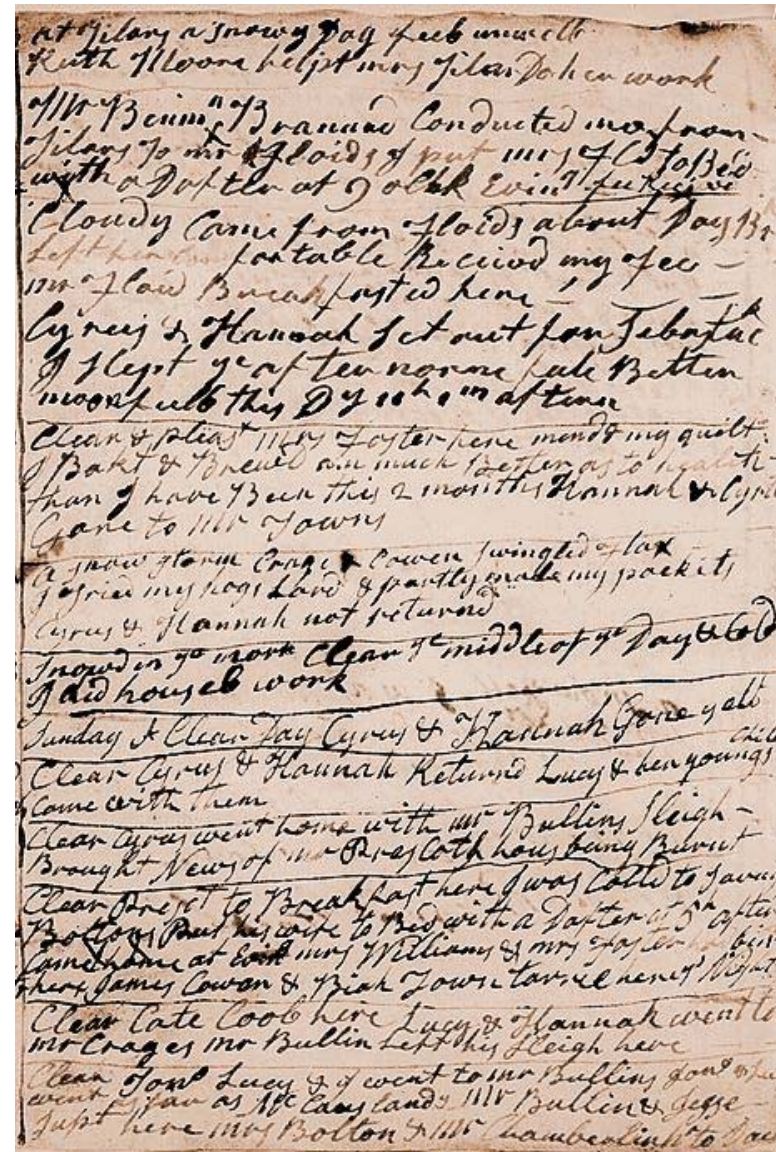 at Jilars a snowy Day feel unwell
Ruth Moore helpt mrs Jilar Do her work
Mr Benimn Branard Conducted me from
Jilars to mr Floids I put mrs to Bed
with a Dafter at 9 olck Evin
Cloudy Came from Floids about Day
left her fortable Receivd my fee
mr Floid Breakfasted here
Cyrus & Hannah Set out for Sebastuc
I slept ye after noone feele Better
this D
Clear & pleast mrs Foster here mend my quilt
I Bakt & Brewd am much Better as to health
than I have Been this 2 months Hannah & Cyrus
Gone to Mr Towns
A snow storm Crage & Cowen swingled Flax
I tried my hogs Lard & partly made my pockets
Cyrus & Hannah not returned
Snowd in ye morn Clear ye middle of ye Day & Cold
I did house work
Sunday A Clear Day Cyrus & Hannah Gone yett
Clear Cyrus & Hannah Returnd Lucy & her youngs Chil
Come with them
Clear Cyrus went home with mr Bullins Sleigh
Brought News of mr Prescoth hous being Burnt
Clear to Breakfast here I was Calld to Savag
Boltons Put his wife to Bed with a Dafter at 5h after
Came home at mrs Williams & mrs Foster bin
here James Cowan & Biah Town tarrie here ys Night
Clear Cate Coob here Lucy & Hannah went to
mr Crages mr Bullin Left his Sleigh here
Clear Jona Lucy & I went to mr Bullins Jona
went as far as McCauslands Mr Bullin & Jesse
Supt here mrs Bolton & Mr Chamberlin